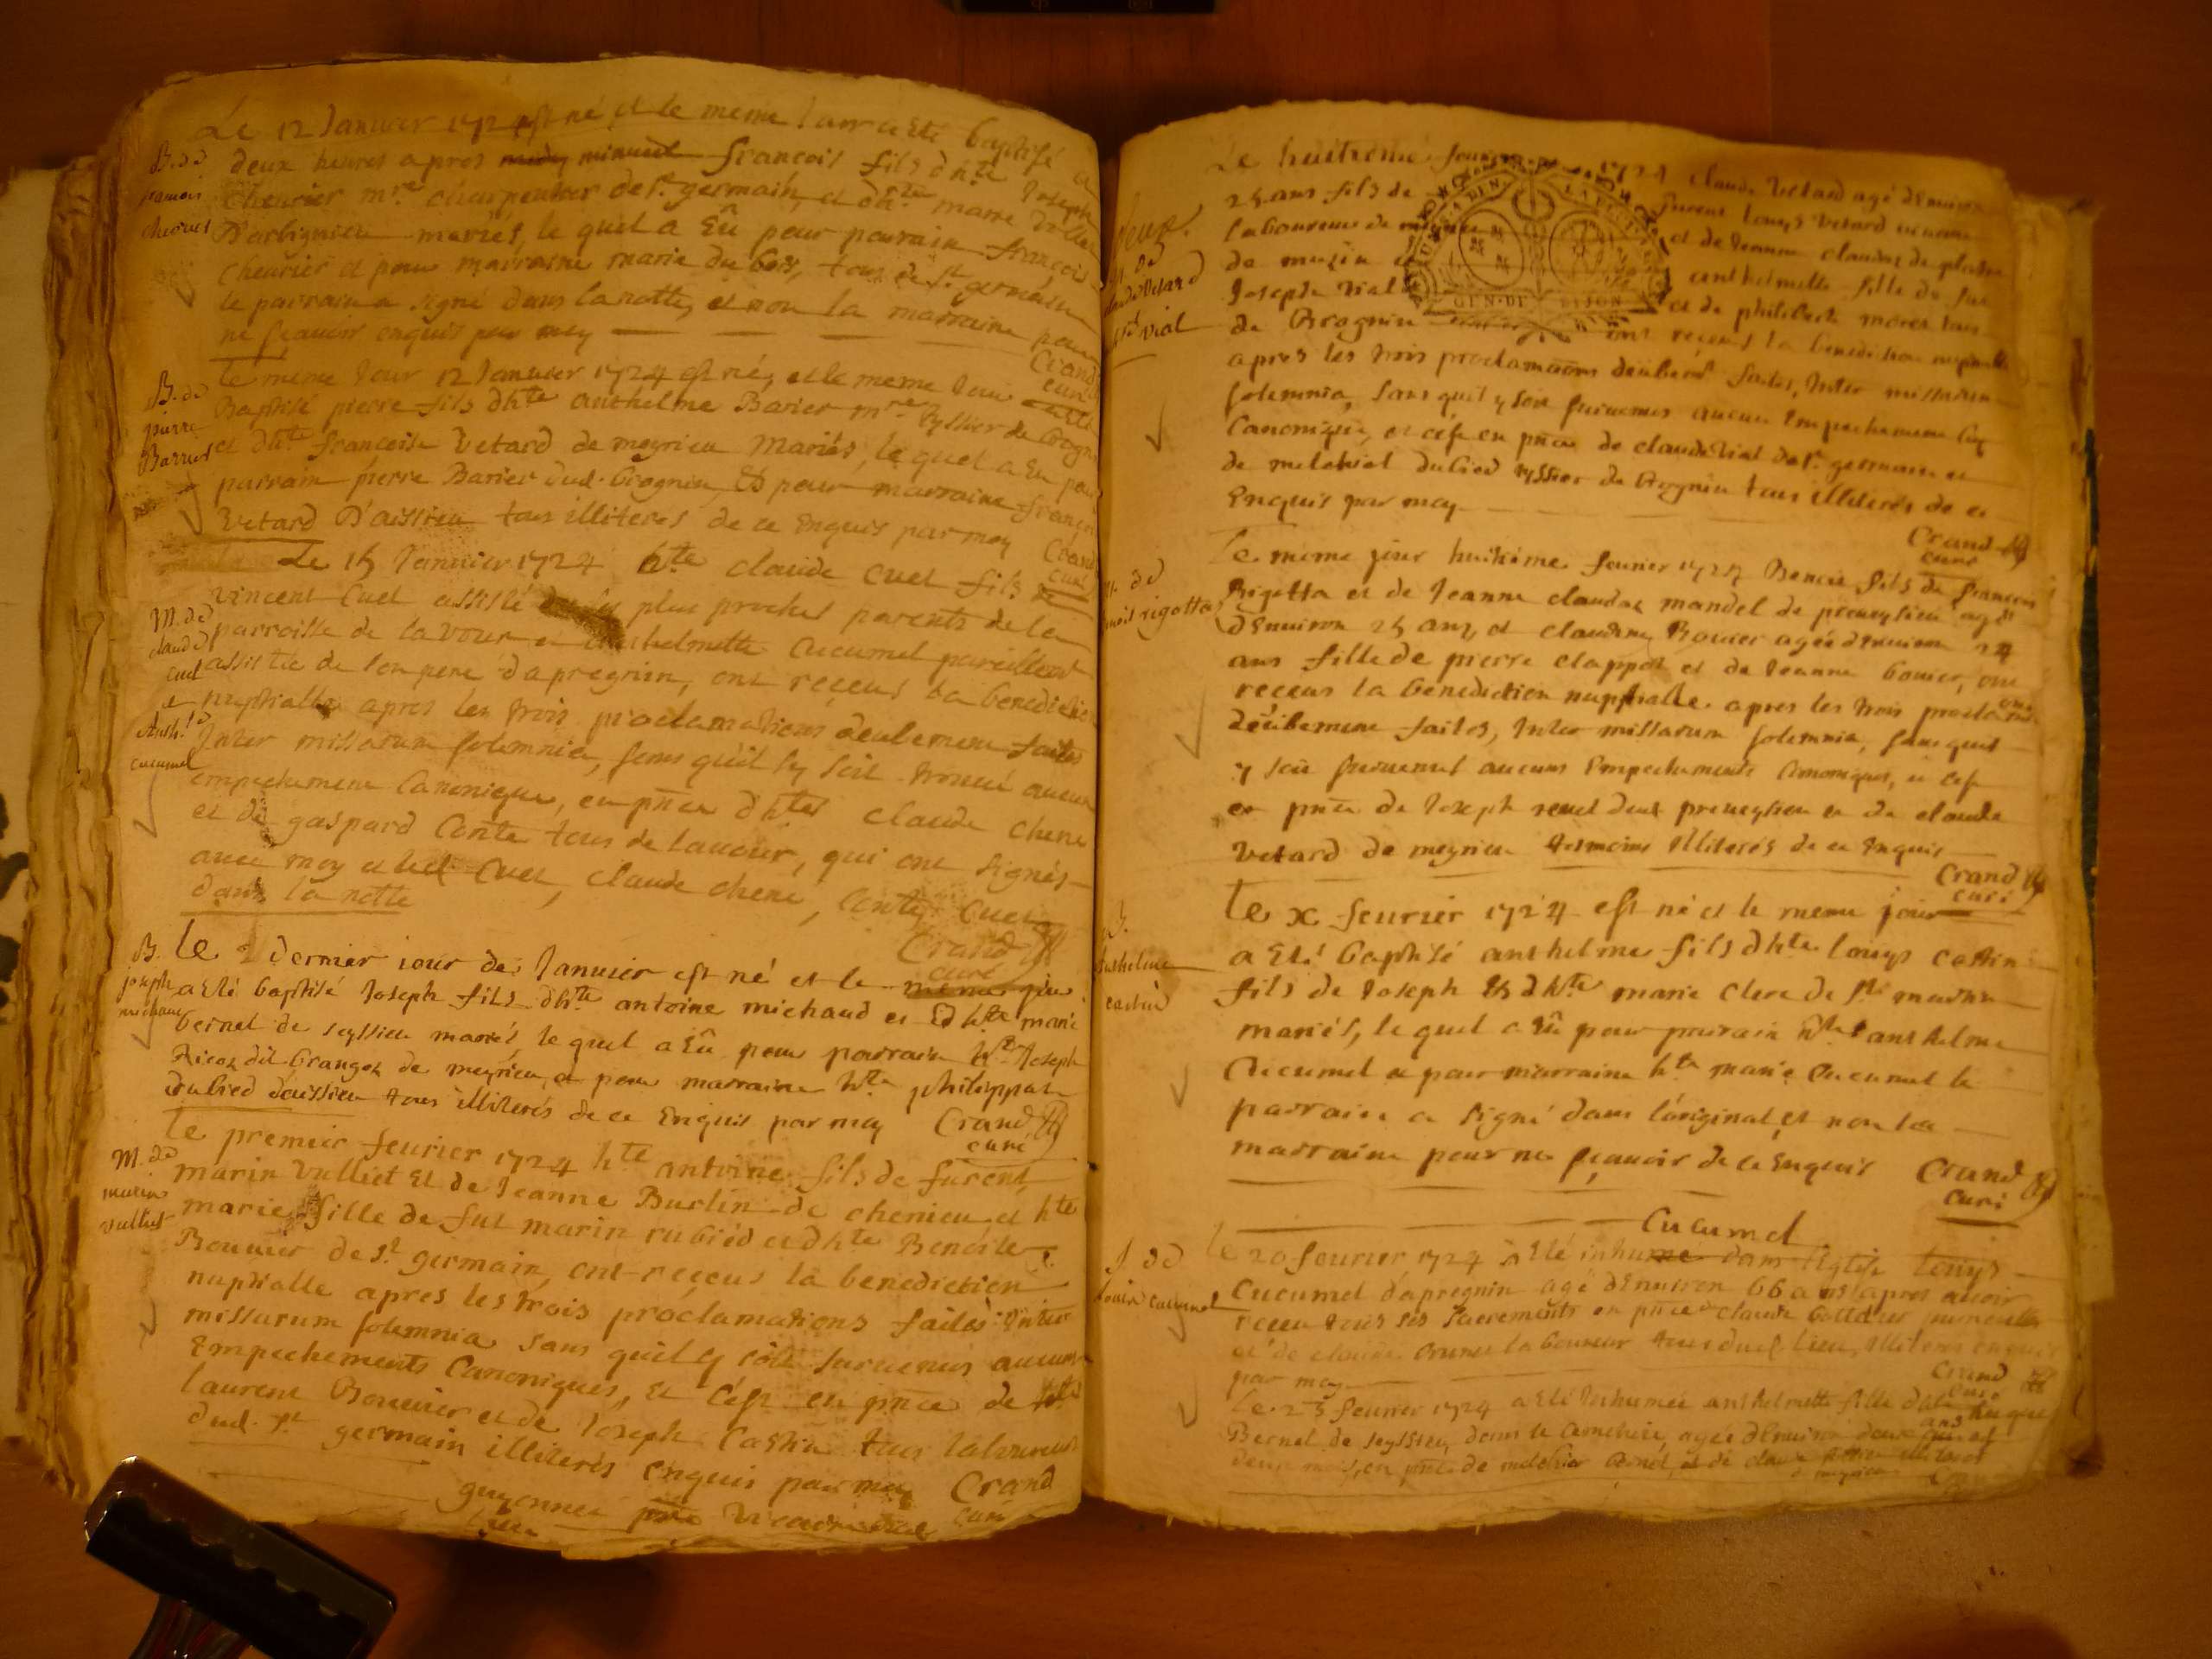 Le 12 Janvier 172 est né et le meme Jour a Eté baptisé a
B. de
françois
deux heures apres minuit françois fils d'h.te Joseph
Chevrier m.re charpentier de s.t germain, et d'h.te marie
D'arbignieu mariés, le quel a Eû pour parrain françois
chevrier et pour marraine marie du bois, tous de s.t germain
le parrain a signé dans la notte, et non la marraine pour
ne sçavoir enquis par moy
Crand
curé
B. de
pierre
Barrier
le meme Jour 12 Janvier 1724 est né, et le meme Jour a eté
Baptisé pierre fils d'h.te anthelme Barier m.re tyssier de brognin
et d'h.te francoise Vetard de meyrieu Mariés, le quel a Eu pour
parrain pierre Barier dud. brognin, Et pour marraine françoise
Vetard D'aissieu tous illiteres de ce Enquis par moy
Crand
curé
M. de
claude
cuet
et
Anth.te
cucumel
Le 15 Janvier 1724 h.te claude cuet fils de
vincent Cuet assisté plus proches parents de la
parroisse de lavour et anthelmette Cucumel pareillement
assistée de son pere d'apregnin, ont reçeus la benediction
nuptialle apres les trois proclamations deuement faites
Inter missarum solemnia, sans qu'il sy soit trouvé aucun
empechement Canonique, en pñce d'h.tes claude chene
et de gaspard Conte tous de lavour, qui ont signés
avec moy et led. Cuet, claude chene, Conte, Cuet
dans la notte
Crand
curé
B.
joseph
michaud
le dernier jour de Janvier est né et le meme jour
a eté baptisé Joseph fils d'h.te antoine michaud et d'h.te marie
bernet de seyssieu mariés, le quel a Eû pour parrain h.te Joseph
Ricoz dit brangoz de meyrieu, et pour marraine h.te philippaz
dubied d'aissieu tous illiterés de ce Enquis par moy Crand
curé
M. de
marin
vulliet
Le premier fevrier 1724 h.te antoine fils de furent
marin Vulliet Et de Jeanne Burlin de chenieu et h.te
marie fille de fut marin rubiéd et d'h.te Benoite
Bouvier de s.t germain, ont reçeus la benediction
nuptialle apres les trois proclamations faites Inter
missarum solemnia sans quil sy soit survenus aucuns
Empechements Canoniques, Et c'est en pñce de h.tes
laurent Bouvier et de Joseph Castin tous laboureurs
dud. s.t germain illiterés enquis par moy Crand
curé
Le huitieme fevrier 1724 claude Vetard agé d'Environ
25 ans fils de furent louys Vetard
laboureur de meyrieu et de Jeanne claudaz
de anthelmette fille de fut
Joseph Vial et de philiberte tous
de Brognin ont reçeus la benediction nuptialle
claude Vetard
vial
apres les trois proclamations deuëment faites, Inter missarum
solemnia, sans quil y soit survenus aucun Empechement
Canonique, et c'est en pñce de claude Vial de s.t germain et
de melchiol dubied tyssier de brognin tous illiterés de ce
Enquis par moy
Crand
curé
benoit rigotta
le meme jour huitieme fevrier 1724 Benoit fils de françois
Rigotta et de Jeanne claudaz mandel de preveyssieu agé
d'Environ 25 ans, et claudine Bouvier agée d'Environ 24
ans fille de pierre clappet et de Jeanne bouvier, ont
reçeus la benediction nupthalle apres les trois proclamations
deüement faites, Inter missarum solemnia, sans quil
y soit survenus aucuns Empechements Canoniques, et c'est
en pñce de Joseph revel dud. preveyssieu et de claude
Vetard de meyrieu temoins illiterés de ce Enquis
Crand
curé
B.
Anthelme
castin
Le x fevrier 1724 est né et le meme jour
a Eté baptisé anthelme fils d'h.te louys castin
fils de Joseph Et d'h.te marie clerc de s.t martin
mariés, le quel a Eû pour parrain h.te anthelme
Cucumel et pour marraine h.te marie Cucumel le
parrain a signé dans l'original, et non la
marraine pour ne sçavoir de ce Enquis Crand
curé
Cucumel
S. de
louis cucumel
le 20 fevrier 1724 a eté inhumé dans l'Eglise louys
Cucumel d'apregnin agé d'Environ 66 ans apres avoir
receu tous ses sacrements en pñce claude
et de claude brunet laboureur tous dud. lieu, illiteres enquis
par moy
Crand
curé
Le 23 fevrier 1724 a eté Inhumée anthelmette fille de
Bernet de seyssieu dans le cimetiere, agée d'Environ deux ans et
deux mois, en pñce de melchior Bernet, et de claude illiteres